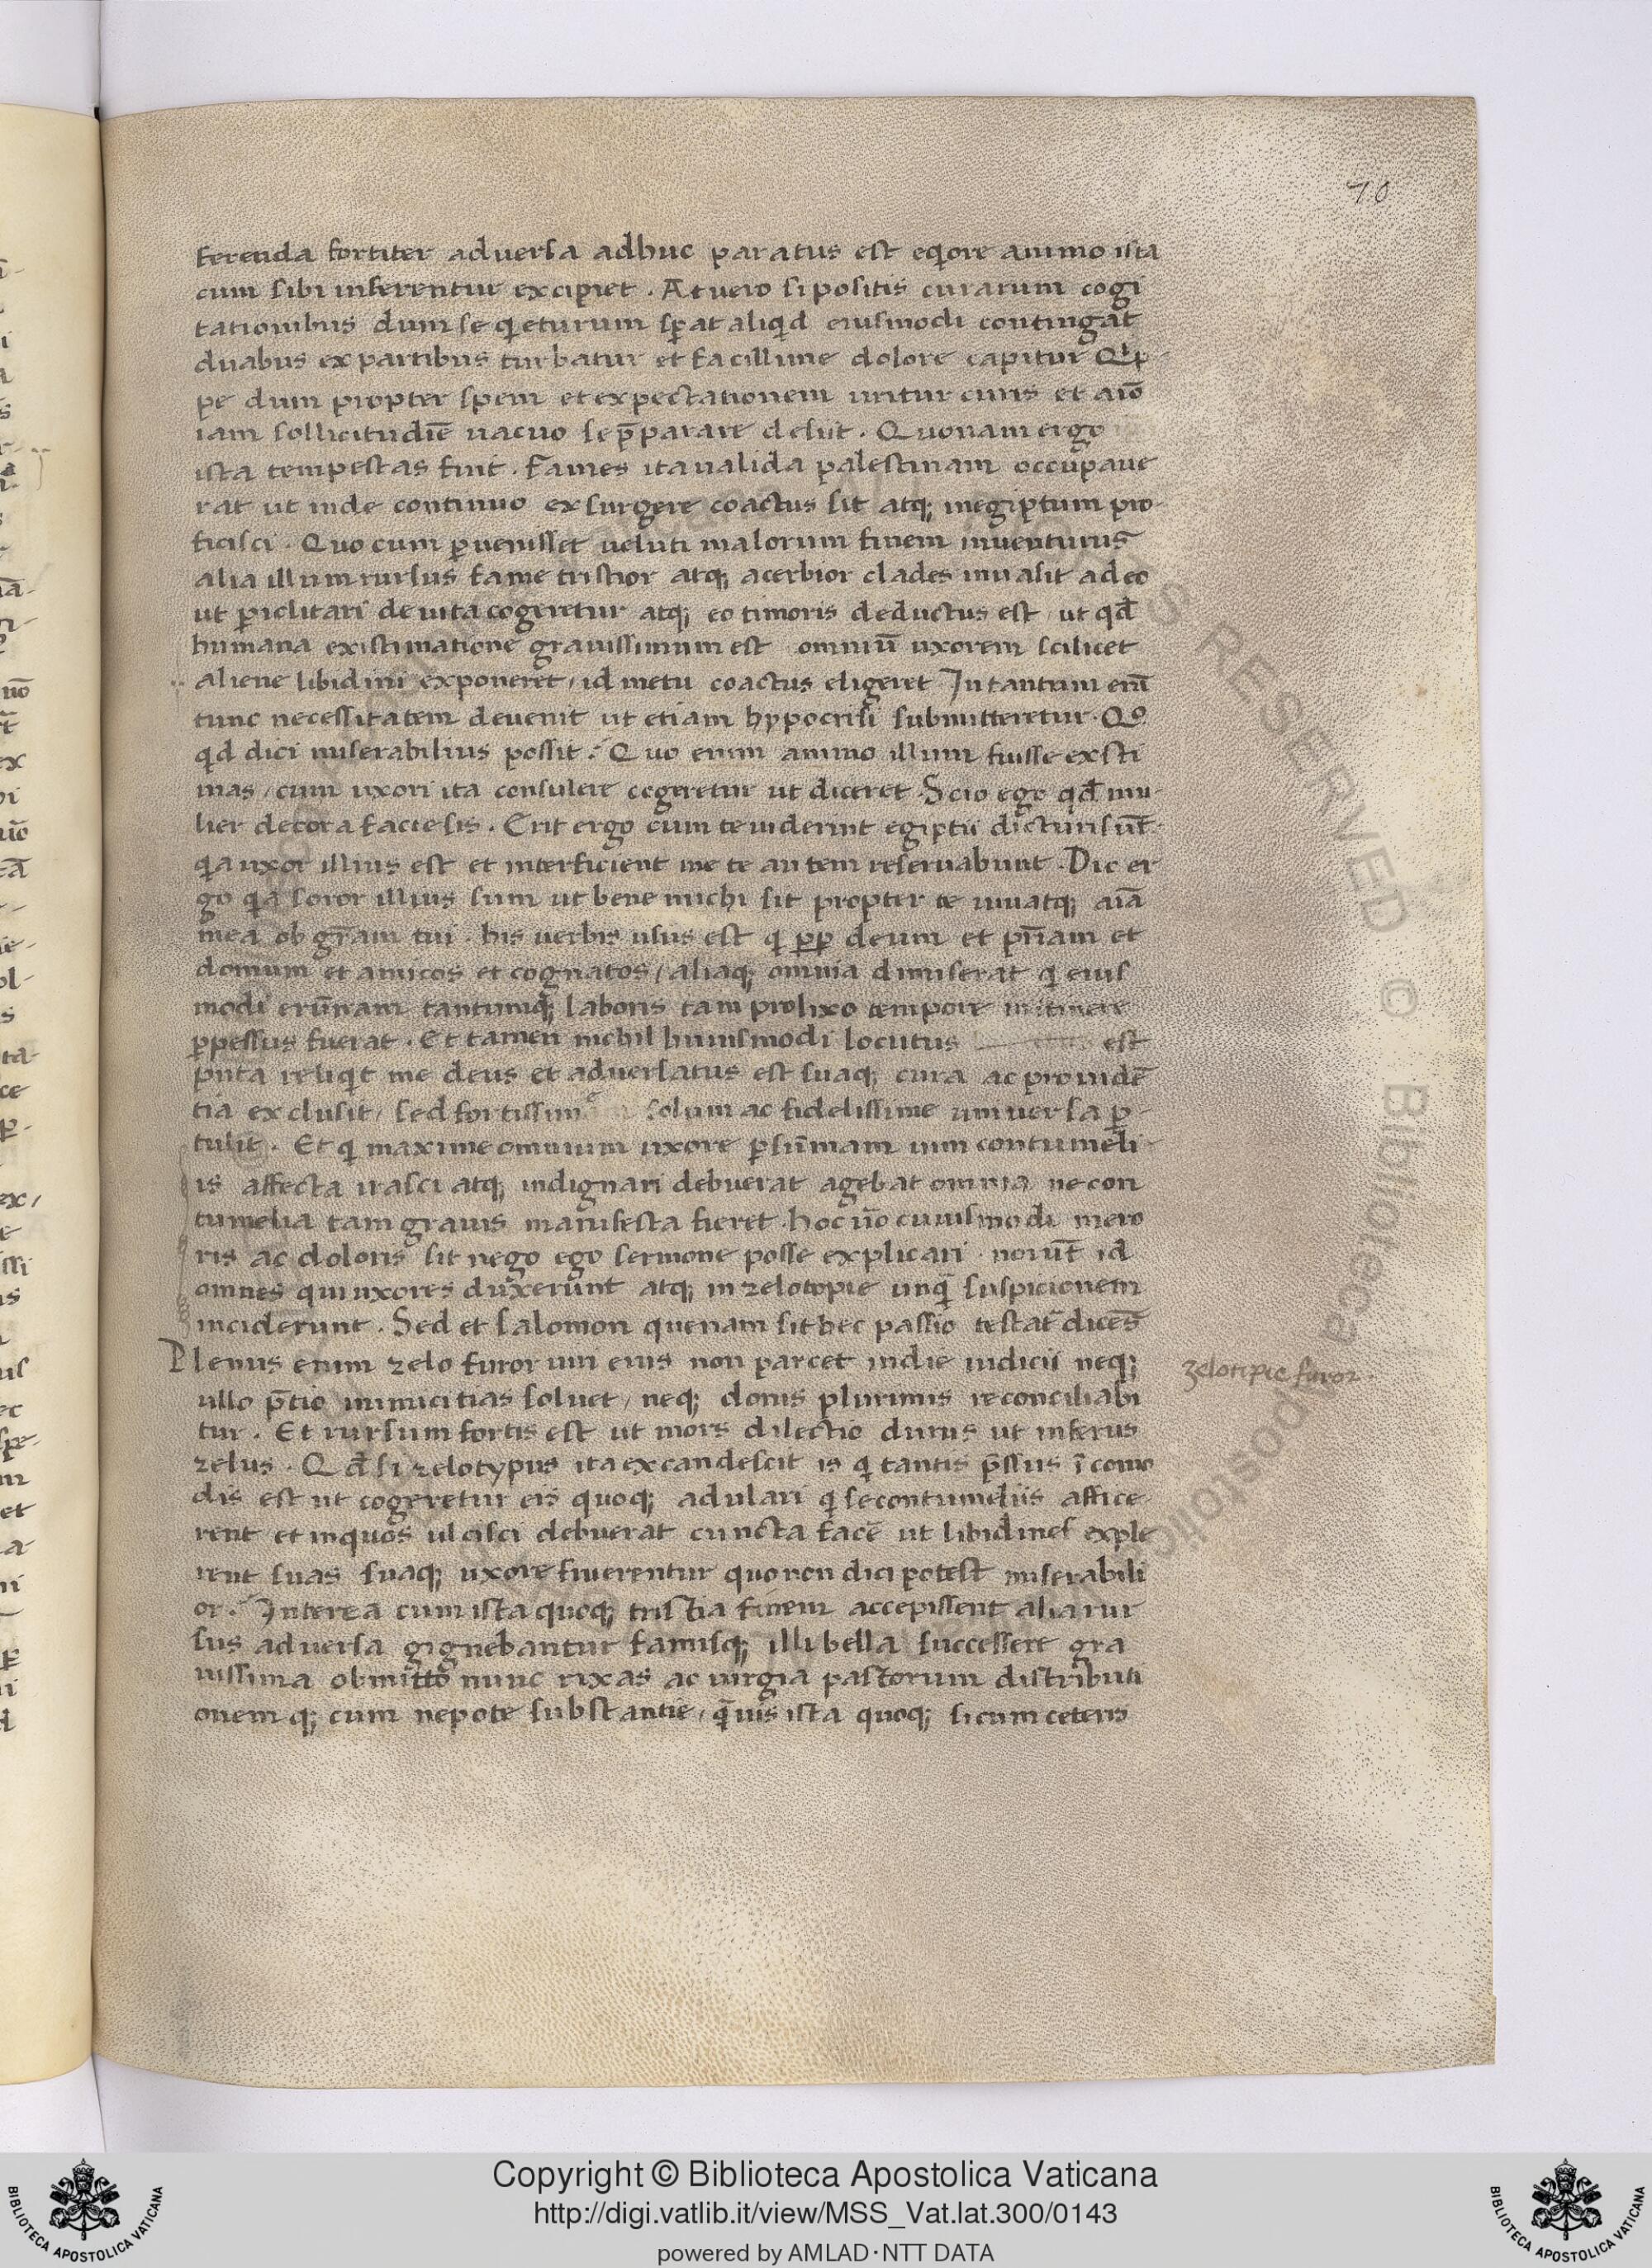 70
ferenda fortiter aduersa adhuc paratus est eqiore animo ista
cum sibi inferentur excipiet . At uero si positis curarum cogi
tationibus dum se qieturum sp̄at aliqid eiusmodi contingat
duabus ex partibus turbatur et facillime dolore capitur Qip-
pe dum propter spem et expectationem utitur curis et aīo
iam sollicitudīe uacuo se p̄parare desiit . Quonam ergo
ista tempestas fuit . Fames ita ualida palestinam occupaue
rat ut inde continuo exsurgere coactus sit atq; in egiptum pro-
ficisci . Quo cum ꝑuenisset ueluti malorum finem inuenturus
alia illum rursus fame tristior atq; acerbior clades inuasit adeo
ut ꝑiclitari de uita cogeretur atq; eo timoris deductus est ut qd̄
humana existimatione grauissimum est omniū uxorem scilicet
aliene libidini exponeret / id metu coactus eligeret In tantum enī
tunc necessitatem deuenit ut etiam hypocrisi submitteretur . Qo
qid dici miserabilius possit . Quo enim animo illum fuisse existi
mas / cum uxori ita consulere cogeretur ut diceret . Scio ego qd̄ mu-
lier decora facie sis . Erit ergo cum te uiderint egiptii dicturi sūt
qia uxor illius est et interficient me te autem reseruabunt . Dic er
go qia soror illius sum ut bene michi sit propter te uiuatq; aīa
mea ob grām tui . his uerbis usus est qi ꝓp deum et pr̄iam et
domum et amicos et cognatos / aliaq; omnia dimiserat qi eius
modi erūnam tantumq; laboris tam prolixo tempore itinere
ꝑpessus fuerat . Et tamen nichil huiusmodi locutus est
puta reliqit me deus et aduersatus est suaq; cura ac prouidē
tia exclusit / sed fortissime solum ac fidelissime uniuersa ꝑ-
tulit . Et qi maxime omnium uxore ꝑ sūmam uim contumeli-
is affecta irasci atq; indignari debuerat agebat omnia ne con
tumelia tam grauis manifesta fieret . hoc ūo cuiusmodi mero
ris ac doloris sit nego ego sermone posse explicari . norūt id
omnes qui uxores duxerunt atq; in zelotopie unq̄ suspicionem
inciderunt . Sed et salomon quenam sit hec passio testat̄ dicēs
Plenus enim zelo furor uiri eius non parcet in die iudicii neq;
zelotipie furor .
ullo p̄tio inimicitias soluet / neq; donis plurimis reconciliabi
tur . Et rursum fortis est ut mors dilectio durus ut inferus
zelus . Qd̄ si zelotypus ita excandescit is qi tantis p̄ssus īcomo
dis est ut cogeretur eis quoq; adulari qi se contumeliis affice-
rent et in quos ulcisci debuerat cuncta facē ut libidines exple
rent suas suaq; uxore fruerentur quo non dici potest miserabili
or . Interea cum ista quoq; tristia finem accepissent alia rur
sus aduersa gignebantur famisq; illi bella successere gra
uissima obmitto nunc rixas ac iurgia pastorum distributi
onem q; cum nepote substantie / q̄uis ista quoq; si cum ceteris
Copyright © Biblioteca Apostolica Vaticana
http://digi.vatlib.it/view/MSS_Vat.lat.300/0143
powered by AMLAD·NTT DATA
BIBLIOTECA APOSTOLICA VATICANA
BIBLIOTECA APOSTOLICA VATICANA